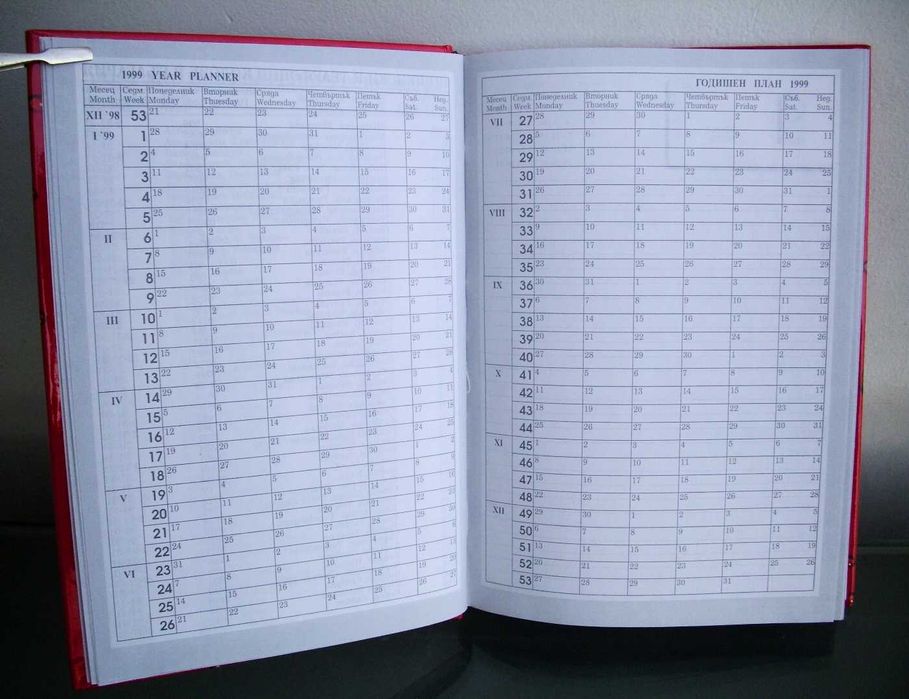 1999 YEAR PLANNER
Месец Седм. Понеделник Вторник Сряда Четвъртък Петък Съб. Нед.
Month Week Monday Thuesday Wednesday Thursday Friday Sat. Sun.
XII `98 53 21 22 23 24 25 26 27
I `99 1 28 29 30 31 1 2 3
2 4 5 6 7 8 9 10
3 11 12 13 14 15 16 17
4 18 19 20 21 22 23 24
5 25 26 27 28 29 30 31
II 6 1 2 3 4 5 6 7
7 8 9 10 11 12 13 14
8 15 16 17 18 19 20 21
9 22 23 24 25 26 27 28
III 10 1 2 3 4 5 6 7
11 8 9 10 11 12 13 14
12 15 16 17 18 19 20 21
13 22 23 24 25 26 27 28
IV 14 29 30 31 1 2 3 4
15 5 6 7 8 9 10 11
16 12 13 14 15 16 17 18
17 19 20 21 22 23 24 25
18 26 27 28 29 30 1 2
V 19 3 4 5 6 7 8 9
20 10 11 12 13 14 15 16
21 17 18 19 20 21 22 23
22 24 25 26 27 28 29 30
VI 23 31 1 2 3 4 5 6
24 7 8 9 10 11 12 13
25 14 15 16 17 18 19 20
26 21 22 23 24 25 26 27
ГОДИШЕН ПЛАН 1999
Месец Седм. Понеделник Вторник Сряда Четвъртък Петък Съб. Нед.
Month Week Monday Thuesday Wednesday Thursday Friday Sat. Sun.
VII 27 28 29 30 1 2 3 4
28 5 6 7 8 9 10 11
29 12 13 14 15 16 17 18
30 19 20 21 22 23 24 25
31 26 27 28 29 30 31 1
VIII 32 2 3 4 5 6 7 8
33 9 10 11 12 13 14 15
34 16 17 18 19 20 21 22
35 23 24 25 26 27 28 29
IX 36 30 31 1 2 3 4 5
37 6 7 8 9 10 11 12
38 13 14 15 16 17 18 19
39 20 21 22 23 24 25 26
40 27 28 29 30 1 2 3
X 41 4 5 6 7 8 9 10
42 11 12 13 14 15 16 17
43 18 19 20 21 22 23 24
44 25 26 27 28 29 30 31
XI 45 1 2 3 4 5 6 7
46 8 9 10 11 12 13 14
47 15 16 17 18 19 20 21
48 22 23 24 25 26 27 28
XII 49 29 30 1 2 3 4 5
50 6 7 8 9 10 11 12
51 13 14 15 16 17 18 19
52 20 21 22 23 24 25 26
53 27 28 29 30 31